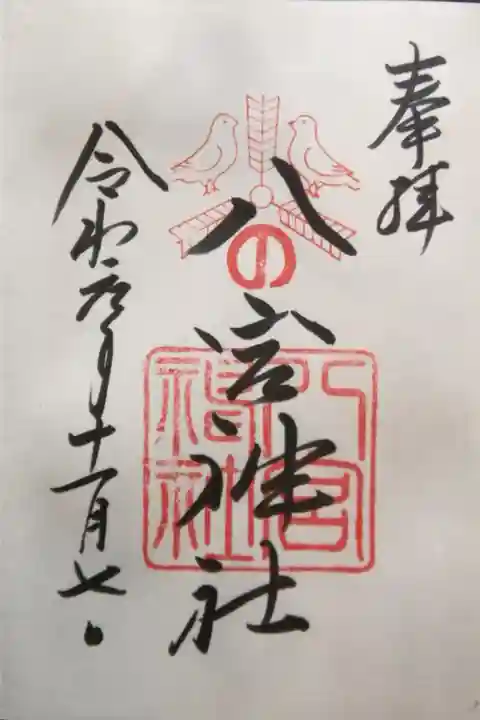 奉拝
八宮神社
令和元年十一月七日
の
八宮神社